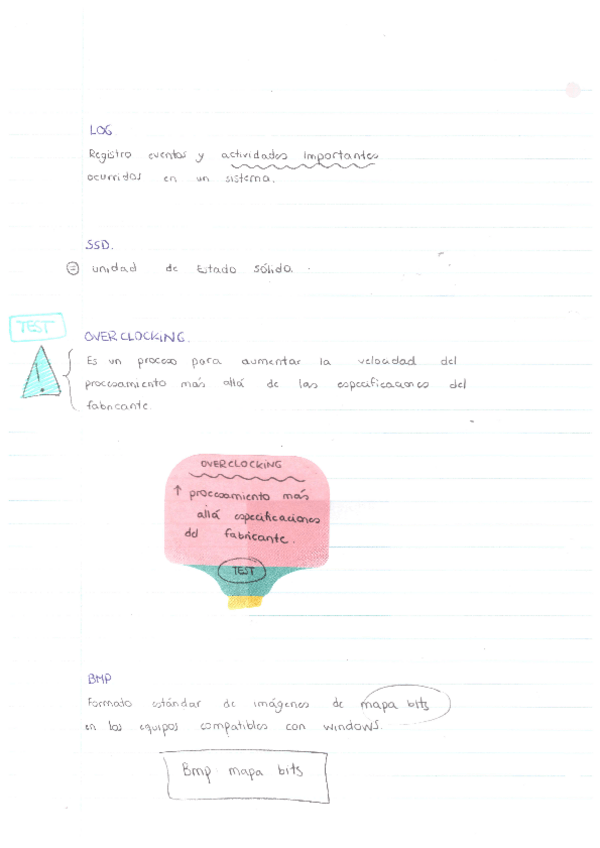 LOG
Registro eventos y actividades importantes
ocurridos en un sistema.
SSD.
= unidad de Estado sólido.
TEST
OVERCLOCKING.
Es un proceso para aumentar la velocidad del
procesamiento más allá de las especificaciones del
fabricante
OVERCLOCKING
↑ procesamiento más
allá especificaciones
del fabricante.
TEST
BMP
Formato estándar de imágenes de mapa bits
en los equipos compatibles con windows.
Bmp mapa bits